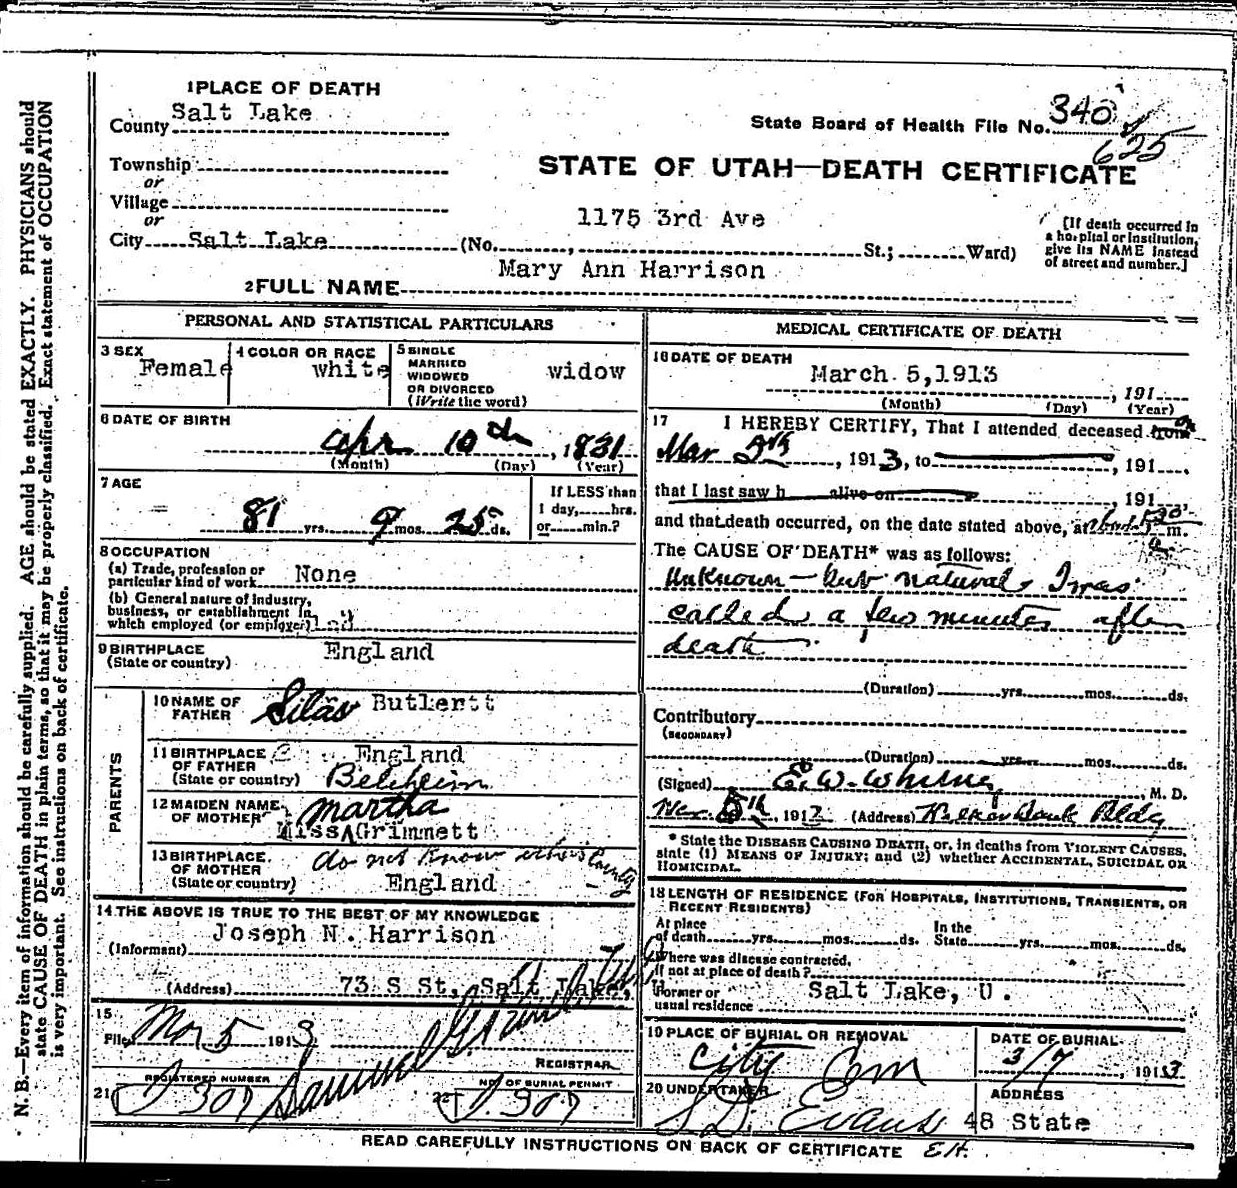 1 PLACE OF DEATH
County Salt Lake
State Board of Health File No. 340
625
Township
or
Village
or
City Salt Lake
STATE OF UTAH—DEATH CERTIFICATE
1175 3rd Ave
(No. , St.; Ward)
[If death occurred in
a hospital or institution,
give its NAME instead
of street and number.]
Mary Ann Harrison
2 FULL NAME
PERSONAL AND STATISTICAL PARTICULARS
3 SEX
Female
4 COLOR OR RACE
white
5 SINGLE
MARRIED
WIDOWED
OR DIVORCED
(Write the word)
widow
6 DATE OF BIRTH
Apr 10th, 1831
(Month) (Day) (Year)
7 AGE
81 yrs. 9 mos. 25 ds.
If LESS than
1 day, hrs.
or min.?
8 OCCUPATION
(a) Trade, profession or
particular kind of work None
(b) General nature of industry,
business, or establishment in
which employed (or employer)
9 BIRTHPLACE
(State or country)
England
PARENTS
10 NAME OF
FATHER
Silas Butlertt
11 BIRTHPLACE
OF FATHER
(State or country)
England
12 MAIDEN NAME
OF MOTHER
Martha
Miss Grimmett
13 BIRTHPLACE
OF MOTHER
(State or country)
do not know County
England
14 THE ABOVE IS TRUE TO THE BEST OF MY KNOWLEDGE
(Informant) Joseph N. Harrison
(Address) 73 S St, Salt Lake,
15
Filed Mar 5 1913
Samuel
REGISTRAR
21 REGISTERED NUMBER
307
22 NO. OF BURIAL PERMIT
307
MEDICAL CERTIFICATE OF DEATH
16 DATE OF DEATH
March 5, 1913
, 191
(Month) (Day) (Year)
17 I HEREBY CERTIFY, That I attended deceased from
Mar 5th, 1913, to , 191
that I last saw h alive on , 191
and that death occurred, on the date stated above, at 5 30 m.
The CAUSE OF DEATH* was as follows:
Unknown — but natural, I was
called a few minutes after
death
(Duration) yrs. mos. ds.
Contributory
(SECONDARY)
(Duration) yrs. mos. ds.
(Signed) E. W. Whitney, M. D.
5th, 1913 (Address) Walker Bank Bldg
* State the DISEASE CAUSING DEATH, or, in deaths from VIOLENT CAUSES,
state (1) MEANS OF INJURY; and (2) whether ACCIDENTAL, SUICIDAL OR
HOMICIDAL.
18 LENGTH OF RESIDENCE (FOR HOSPITALS, INSTITUTIONS, TRANSIENTS, OR
RECENT RESIDENTS)
At place
of death yrs. mos. ds.
In the
State yrs. mos. ds.
Where was disease contracted,
if not at place of death?
Former or
usual residence Salt Lake, U.
19 PLACE OF BURIAL OR REMOVAL
City Cem
DATE OF BURIAL
3/7, 1913
20 UNDERTAKER
S D Evans
ADDRESS
48 State
READ CAREFULLY INSTRUCTIONS ON BACK OF CERTIFICATE E.H.
N. B.—Every item of information should be carefully supplied. AGE should be stated EXACTLY. PHYSICIANS should
state CAUSE OF DEATH in plain terms, so that it may be properly classified. Exact statement of OCCUPATION
is very important. See instructions on back of certificate.